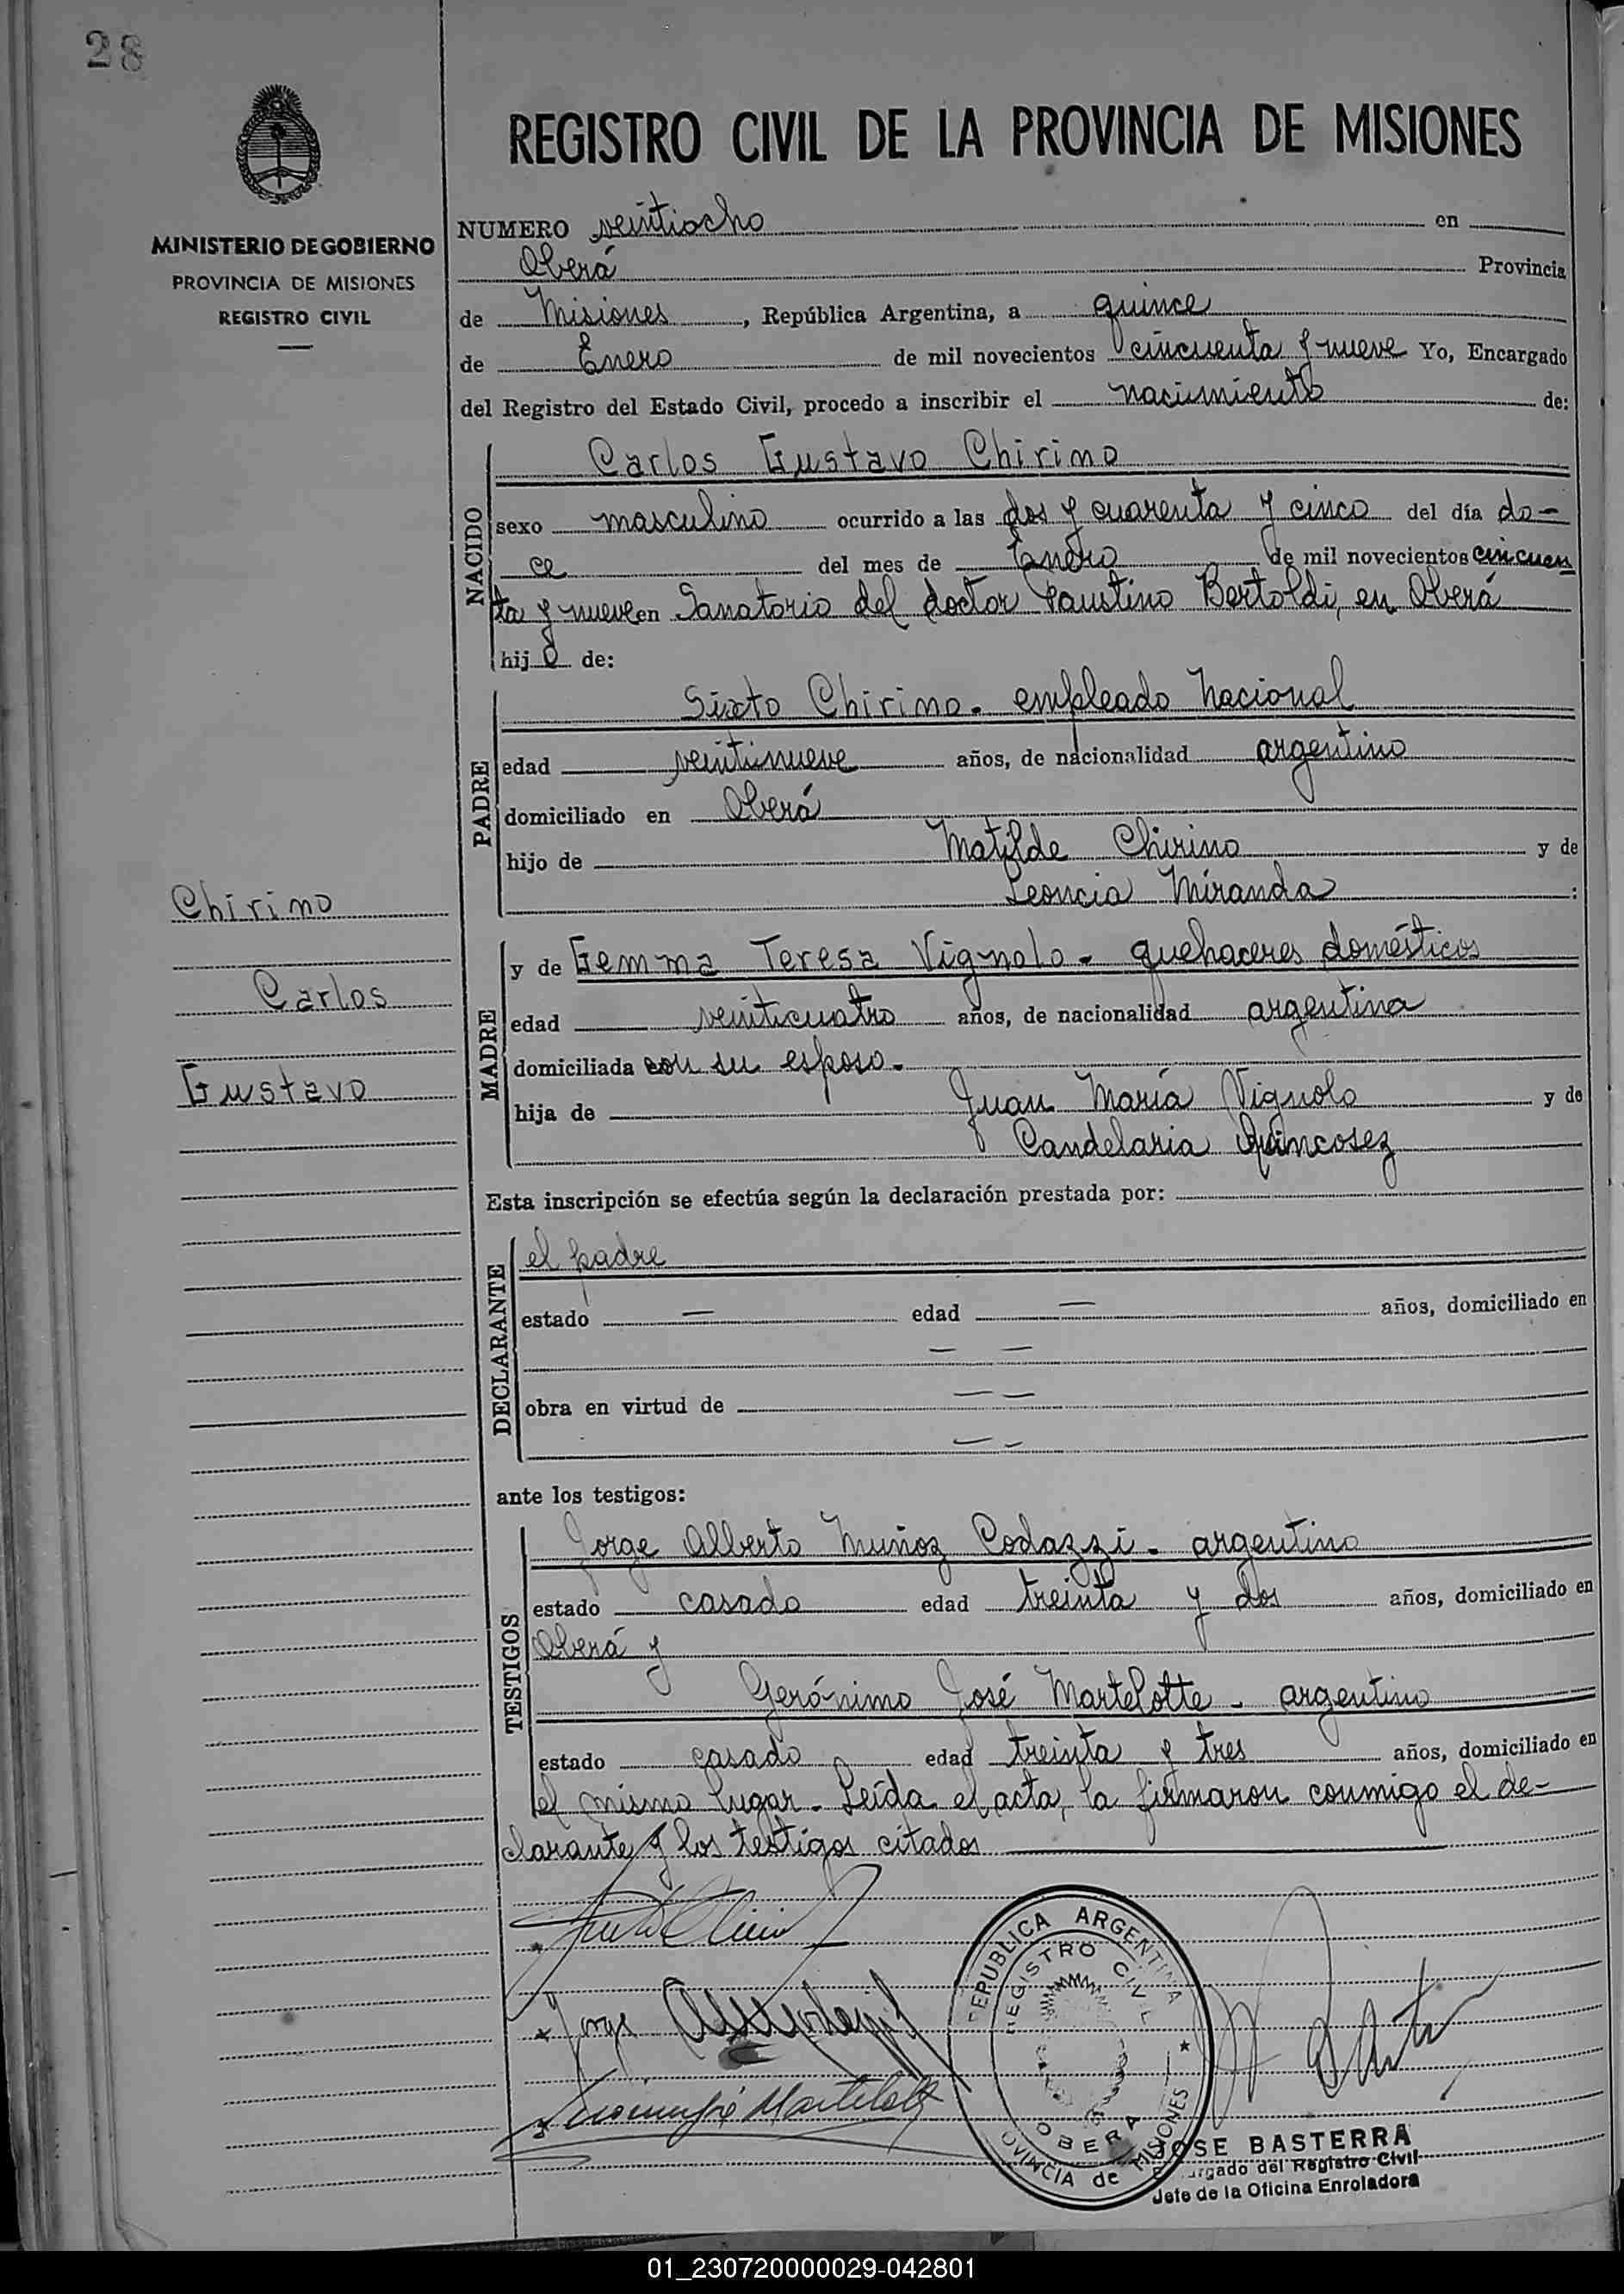 28
REGISTRO CIVIL DE LA PROVINCIA DE MISIONES
MINISTERIO DE GOBIERNO
PROVINCIA DE MISIONES
REGISTRO CIVIL
NUMERO veintiocho en
Oberá Provincia
de Misiones, República Argentina, a quince
de Enero de mil novecientos cincuenta y nueve Yo, Encargado
del Registro del Estado Civil, procedo a inscribir el nacimiento de:
NACIDO
Carlos Gustavo Chirino
sexo masculino ocurrido a las dos y cuarenta y cinco del día do-
ce del mes de Enero de mil novecientos cincuen
ta y nueve en Sanatorio del doctor Faustino Bertoldi, en Oberá
hijo de:
PADRE
Sixto Chirino. empleado nacional
edad veintinueve años, de nacionalidad argentino
domiciliado en Oberá
hijo de Matilde Chirino y de
Leoncia Miranda :
Chirino
Carlos
Gustavo
MADRE
y de Gemma Teresa Vignolo - quehaceres domésticos
edad veinticuatro años, de nacionalidad argentina
domiciliada con su esposo.
hija de Juan María Vignolo y de
Candelaria Quincosez
Esta inscripción se efectúa según la declaración prestada por:
DECLARANTE
el padre
estado — edad — años, domiciliado en
— —
obra en virtud de — —
— -
ante los testigos:
TESTIGOS
Jorge Alberto Muñoz Codazzi - argentino
estado casado edad treinta y dos años, domiciliado en
Oberá y
Gerónimo José Martelotte - argentino
estado casado edad treinta y tres años, domiciliado en
el mismo lugar. Leída el acta, la firmaron conmigo el de-
clarante y los testigos citados
REPUBLICA ARGENTINA
REGISTRO CIVIL
OBERA
PROVINCIA de MISIONES
Jorge
JOSE BASTERRA
Encargado del Registro Civil
Jefe de la Oficina Enroladora
01_230720000029-042801